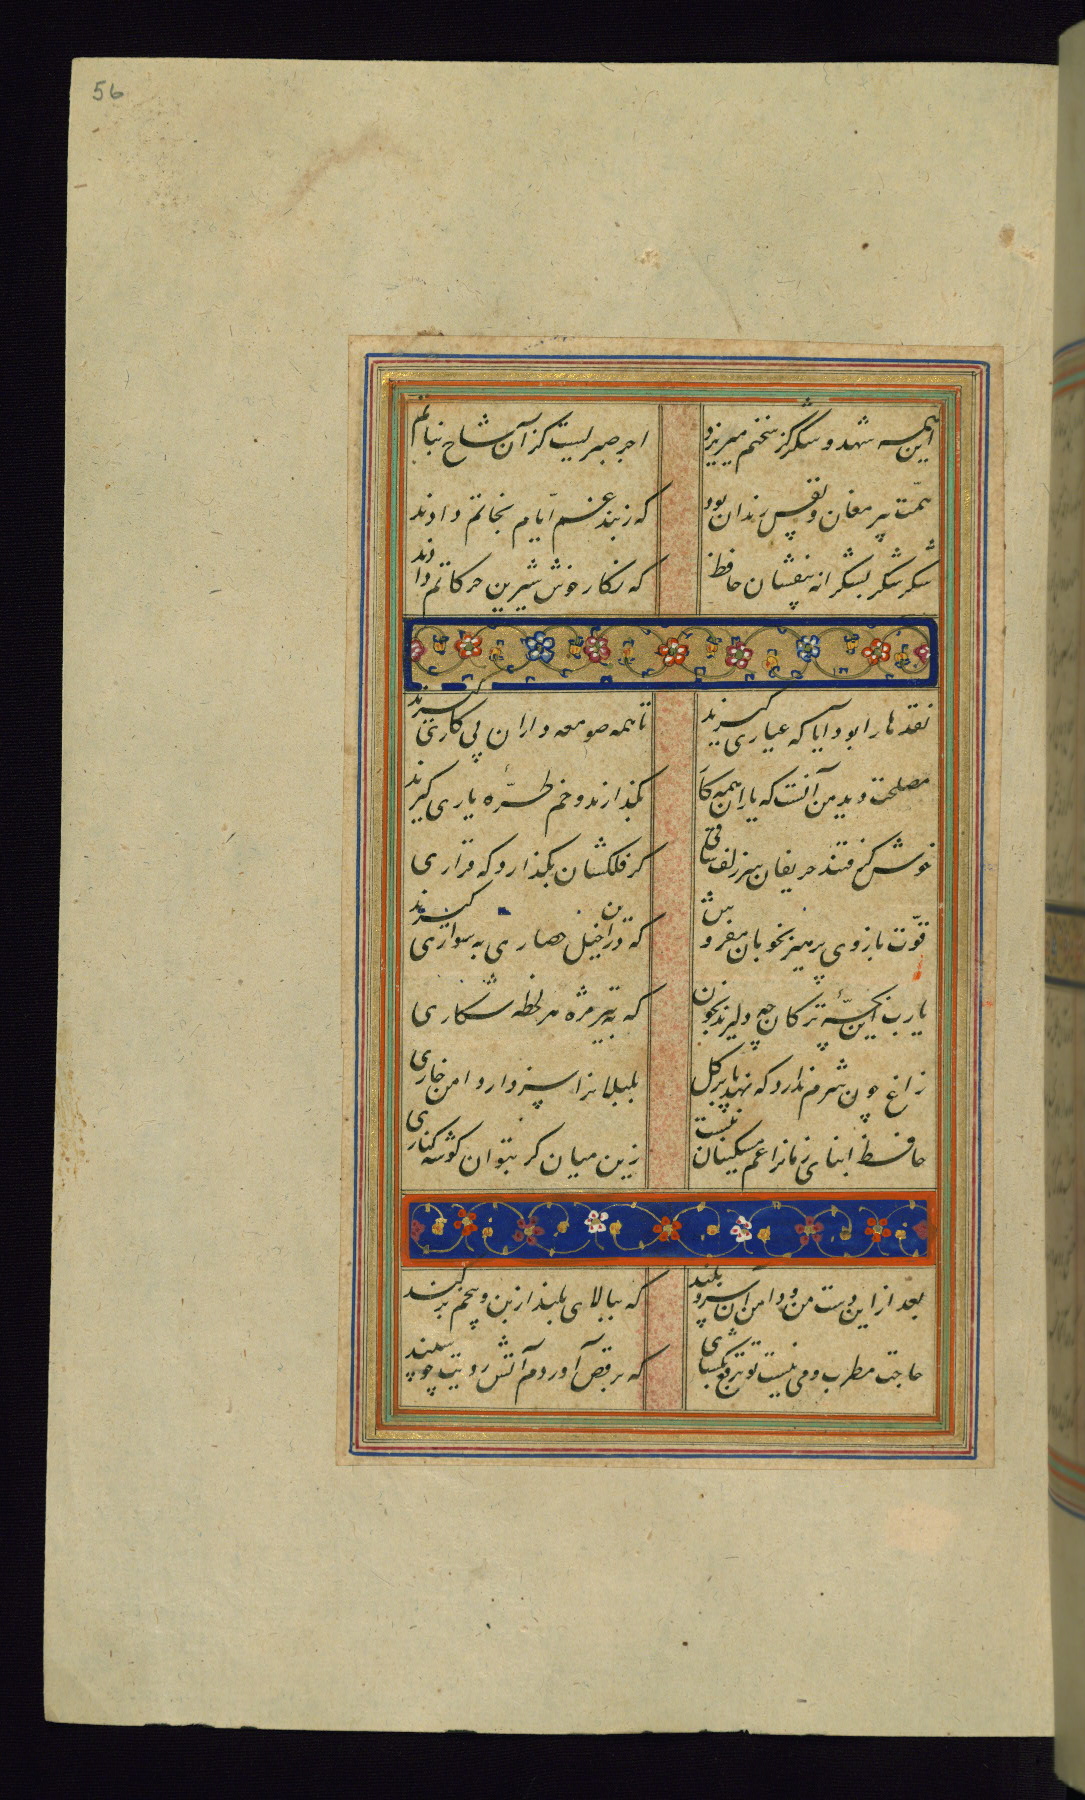 56
این همه شهد و شکر کز سخنم میریزد
اجر صبریست کز آن شاخ نباتم
همّت پیر مغان و نفس رندان بود
که ز بند غم ایّام نجاتم دادند
شکر شکر بشکرانه بیفشان حافظ
که نکار خوش شیرین حرکاتم دادند
نقدها را بود آیا که عیاری کیرند
تا همه صومعه داران پی کاری کیرند
مصلحت دید من آنست که یاران همه کار
بکذارند و خم طرّهٔ یاری کیرند
خوش کرفتند حریفان سر زلف ساقی
کر فلکشان بکذارد که قراری کیرند
قوّت بازوی پرهیز بخوبان مفروش
که در این خیل حصاری به سواری
یا رب این بچّهٔ ترکان چه دلیرند بخون
که به تیر مژه هر لحظه شکاری
زاغ چون شرم ندارد که نهد پا بر کل
بلبلانرا سزد ار دامن خاری
حافظ ابنای زمانرا غم مسکینان نیست
زین میان کر بتوان کوشه کناری
بعد از این دست من و دامن آن سرو بلند
که ببالای بلند از بن و بیخم برکند
حاجت مطرب و می نیست تو برقع بکشای
که برقص آوردم آتش رویت چو سپند